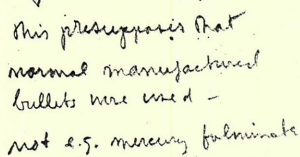 this presupposes that
normal manufactured
bullets were used –
not e.g. mercury fulminate